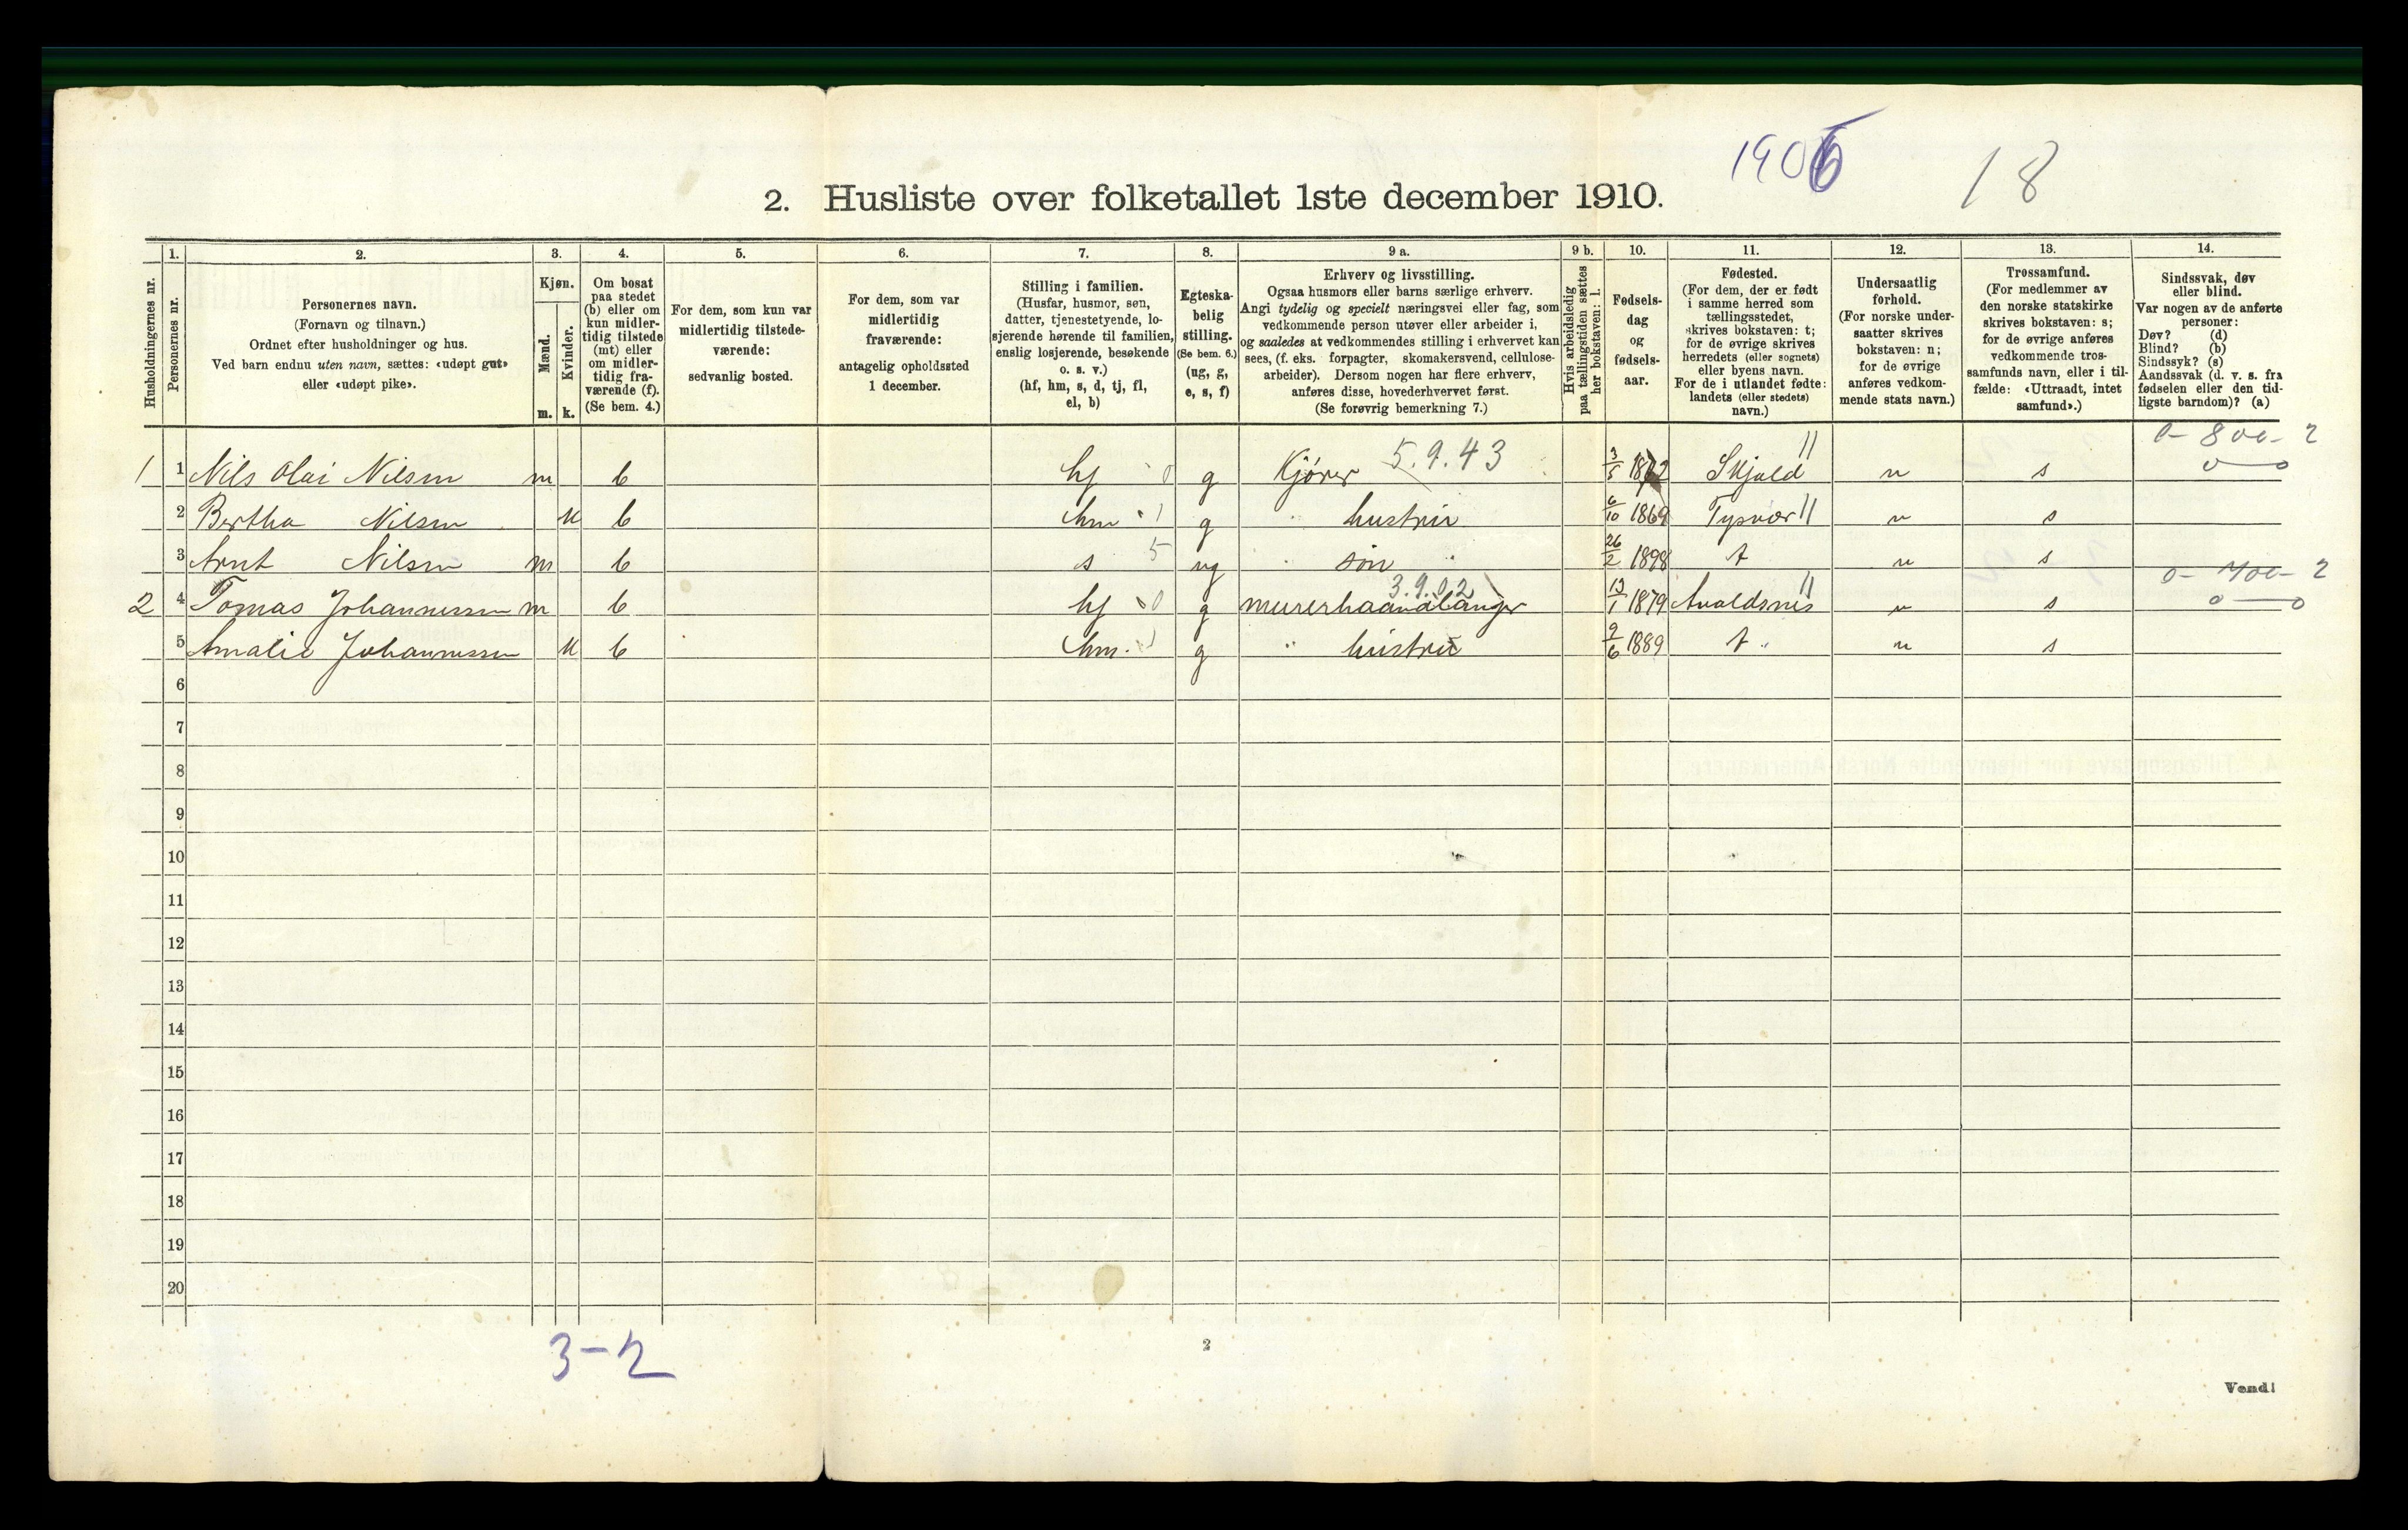 1906 18
2. Husliste over folketallet 1ste december 1910.
Husholdningernes nr.
1.
Personernes nr.
2.
Personernes navn.
(Fornavn og tilnavn.)
Ordnet efter husholdninger og hus.
Ved barn endnu uten navn, sættes: «udøpt gut»
eller «udøpt pike».
3.
Kjøn.
Mænd.
m.
Kvinder.
k.
4.
Om bosat
paa stedet
(b) eller om
kun midler-
tidig tilstede
(mt) eller
om midler-
tidig fra-
værende (f).
(Se bem. 4.)
5.
For dem, som kun var
midlertidig tilstede-
værende:
sedvanlig bosted.
6.
For dem, som var
midlertidig
fraværende:
antagelig opholdssted
1 december.
7.
Stilling i familien.
(Husfar, husmor, søn,
datter, tjenestetyende, lo-
sjerende hørende til familien,
enslig losjerende, besøkende
o. s. v.)
(hf, hm, s, d, tj, fl,
el, b)
8.
Egteska-
belig
stilling.
(Se bem. 6.)
(ug, g,
e, s, f)
9 a.
Erhverv og livsstilling.
Ogsaa husmors eller barns særlige erhverv.
Angi tydelig og specielt næringsvei eller fag, som
vedkommende person utøver eller arbeider i,
og saaledes at vedkommendes stilling i erhvervet kan
sees, (f. eks. forpagter, skomakersvend, cellulose-
arbeider). Dersom nogen har flere erhverv,
anføres disse, hovederhvervet først.
(Se forøvrig bemerkning 7.)
9 b.
Hvis arbeidsledig
paa tællingstiden sættes
her bokstaven: l.
10.
Fødsels-
dag
og
fødsels-
aar.
11.
Fødested.
(For dem, der er født
i samme herred som
tællingsstedet,
skrives bokstaven: t;
for de øvrige skrives
herredets (eller sognets)
eller byens navn.
For de i utlandet fødte:
landets (eller stedets)
navn.)
12.
Undersaatlig
forhold.
(For norske under-
saatter skrives
bokstaven: n;
for de øvrige
anføres vedkom-
mende stats navn.)
13.
Trossamfund.
(For medlemmer av
den norske statskirke
skrives bokstaven: s;
for de øvrige anføres
vedkommende tros-
samfunds navn, eller i til-
fælde: «Uttraadt, intet
samfund».)
14.
Sindssvak, døv
eller blind.
Var nogen av de anførte
personer:
Døv? (d)
Blind? (b)
Sindssyk? (s)
Aandssvak (d. v. s. fra
fødselen eller den tid-
ligste barndom)? (a)
0 - 800 - 2
1 1 Nils Olai Nilsen m b hf 0 g Kjører 5.9.43 3/5 1872 Skjold n s 0 — 0
2 Bertha Nilsen k b hm 1 g " hustru 6/10 1869 Tysvær n s
3 Arnt Nilsen m b s 5 ug " søn " 26/2 1898 t n s
3.9.02 0 - 700 - 2
2 4 Tomas Johannessen m b hf 0 g murerhaandlanger 13/1 1879 Avaldsnes n s 0 — 0
5 Amalie Johannessen k b hm. 1 g " hustru 9/6 1889 t " n s
6
7
8
9
10
11
12
13
14
15
16
17
18
19
20
3-2
2
Vend!